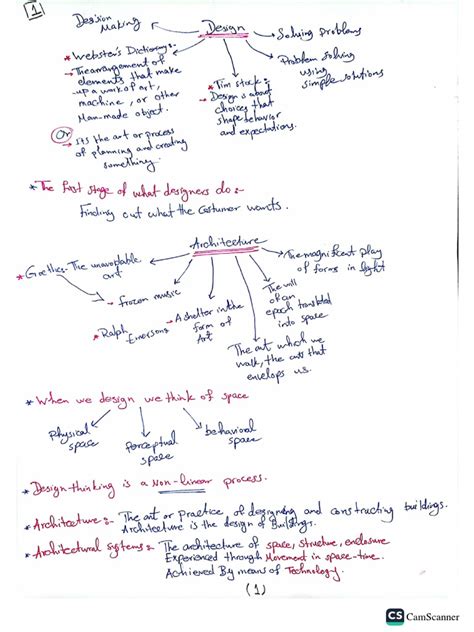 1
Decision
Making
Design
Solving problems
Problem solving
using
simple solutions
* Webster's Dictionary:-
- The arrangement of
elements that make
-up a work of art,
machine, or other
Man-made object.
Or
- Its the art or process
of planning and creating
something.
* Tim stock:-
- Design is about
choices that
shape behavior
and expectations.
* The first stage of what designers do:-
Finding out what the Costumer wants.
Architecture
* Goethe:- The unavoidable
art
→ frozen music
* Ralph
Emerson:
- A shelter in the
form of
Art
The art which we
walk, the art that
envelops us.
The will
of an
epoch translated
into space
The magnificent play
of forms in light
* When we design we think of space
physical
space
perceptual
space
behavioral
space
* Design-thinking is a Non-linear process.
* Architecture:- The art or practice, of designing and constructing buildings.
Architecture is the design of Buildings.
* Architectural systems:- The architecture of space, structure, enclosure
Experienced through Movement in space-time.
Achieved By means of Technology.
(1)
CS CamScanner